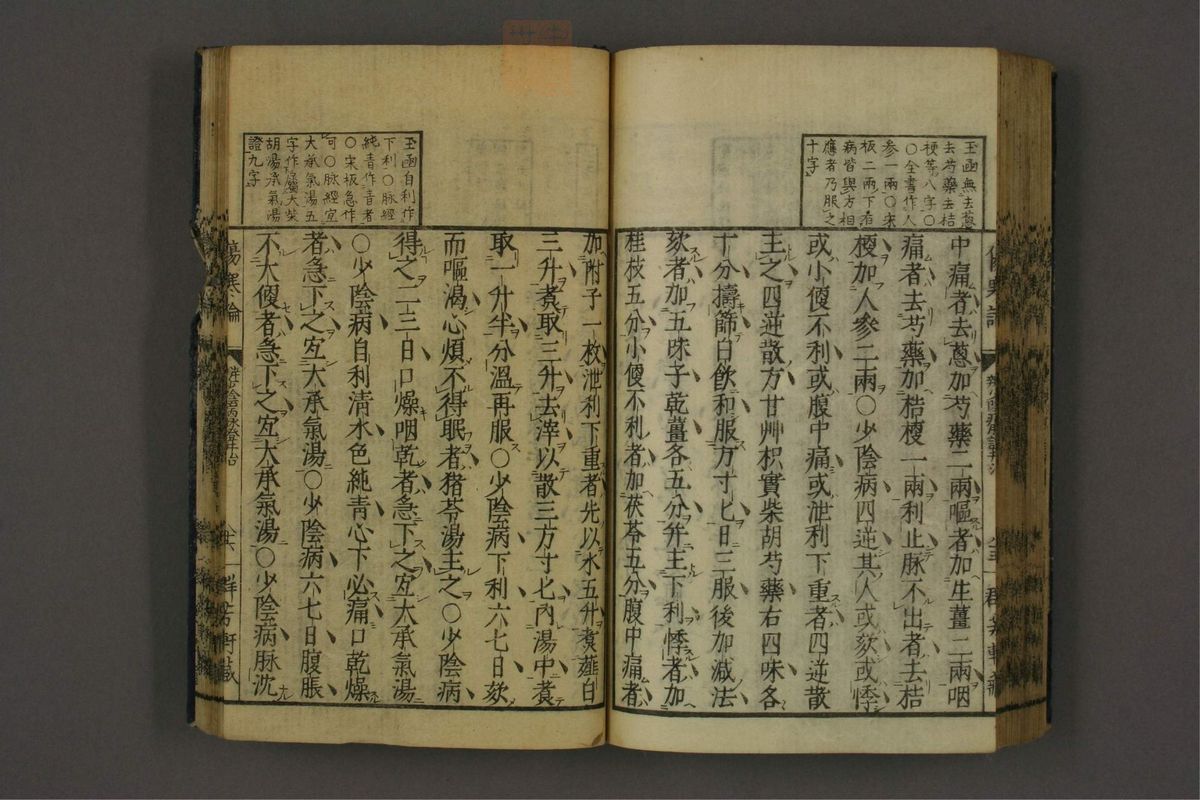 玉函無去蔥
去芍藥去桔
梗等八字○
○全書作人
參一兩○宋
板二兩下有
病皆與方相
應者乃服之
十字
中痛者去蔥加芍藥二兩嘔者加生薑二兩咽
痛者去芍藥加桔梗一兩利止脉不出者去桔
梗加人參二兩○少陰病四逆其人或欬或悸
或小便不利或腹中痛或泄利下重者四逆散
主之四逆散方甘艸枳實柴胡芍藥右四味各
十分擣篩白飲和服方寸匕日三服後加減法
欬者加五味子乾薑各五分并主下利悸者加
桂枝五分小便不利者加茯苓五分腹中痛者
玉函自利作
下利○脉經
純青作青者
○宋板急作
可○脉經宜
大承氣湯五
字作屬大柴
胡湯承氣湯
證九字
加附子一枚泄利下重者先以水五升煑薤白
三升煑取三升去滓以散三方寸匕內湯中煑
取一升半分溫再服○少陰病下利六七日欬
而嘔渴心煩不得眠者猪苓湯主之○少陰病
得之二三日口燥咽乾者急下之宜大承氣湯
○少陰病自利清水色純青心下必痛口乾燥
者急下之宜大承氣湯○少陰病六七日腹脹
不大便者急下之宜大承氣湯○少陰病脉沈
傷寒論